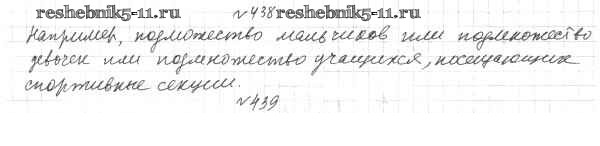 reshebnik5-11.ru №438 reshebnik5-11.ru
Например, подмножество мальчиков или подмножество
девочек или подмножество учащихся, посещающих
спортивные секции.
№439